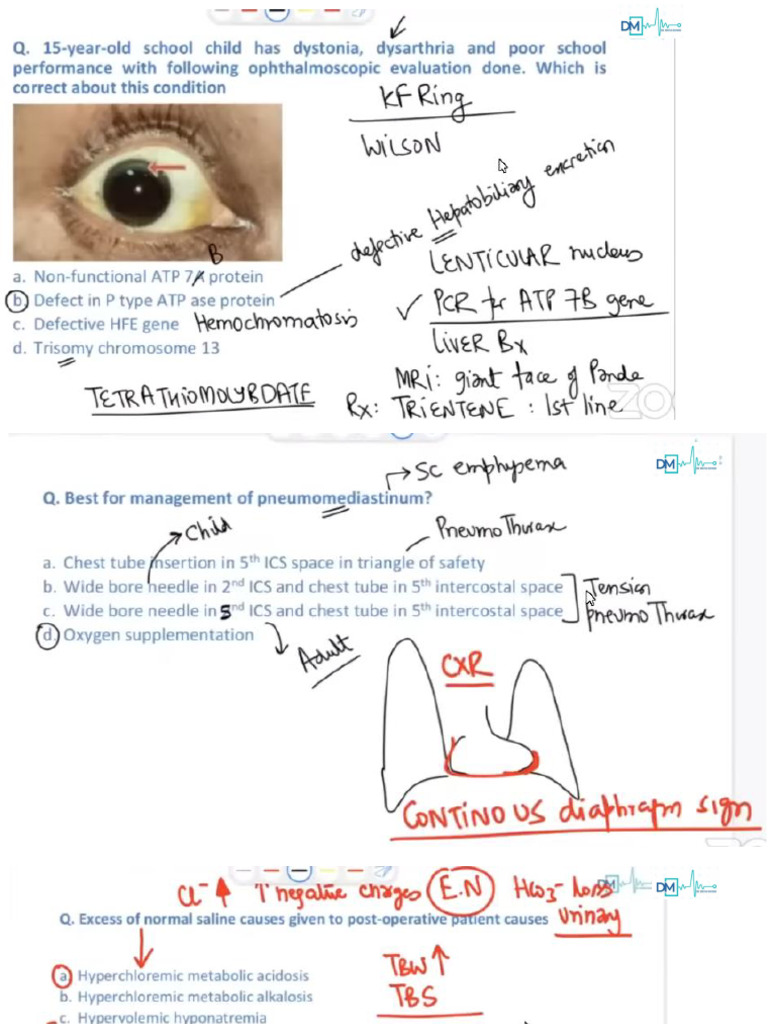 DM
Q. 15-year-old school child has dystonia, dysarthria and poor school
performance with following ophthalmoscopic evaluation done. Which is
correct about this condition
KF Ring
WILSON
defective Hepatobiliary excretion
LENTICULAR nucleus
B
a. Non-functional ATP 7A protein
b. Defect in P type ATP ase protein
✓ PCR for ATP 7B gene
c. Defective HFE gene Hemochromatosis
LIVER Bx
d. Trisomy chromosome 13
MRI: giant face of Panda
TETRATHIOMOLYBDATE
Rx: TRIENTENE : 1st line
ZO
DM
→ SC emphysema
Q. Best for management of pneumomediastinum?
Child
Pneumo Thorax
a. Chest tube insertion in 5th ICS space in triangle of safety
b. Wide bore needle in 2nd ICS and chest tube in 5th intercostal space
Tension
c. Wide bore needle in 5nd ICS and chest tube in 5th intercostal space
pneumo Thorax
d. Oxygen supplementation
Adult
CXR
CONTINOUS diaphragm sign
Cl- ↑ ↑ negative charges E.N HCO3- loss
DM
DM
Q. Excess of normal saline causes given to post-operative patient causes urinary
a. Hyperchloremic metabolic acidosis
TBW ↑
b. Hyperchloremic metabolic alkalosis
TBS
c. Hypervolemic hyponatremia